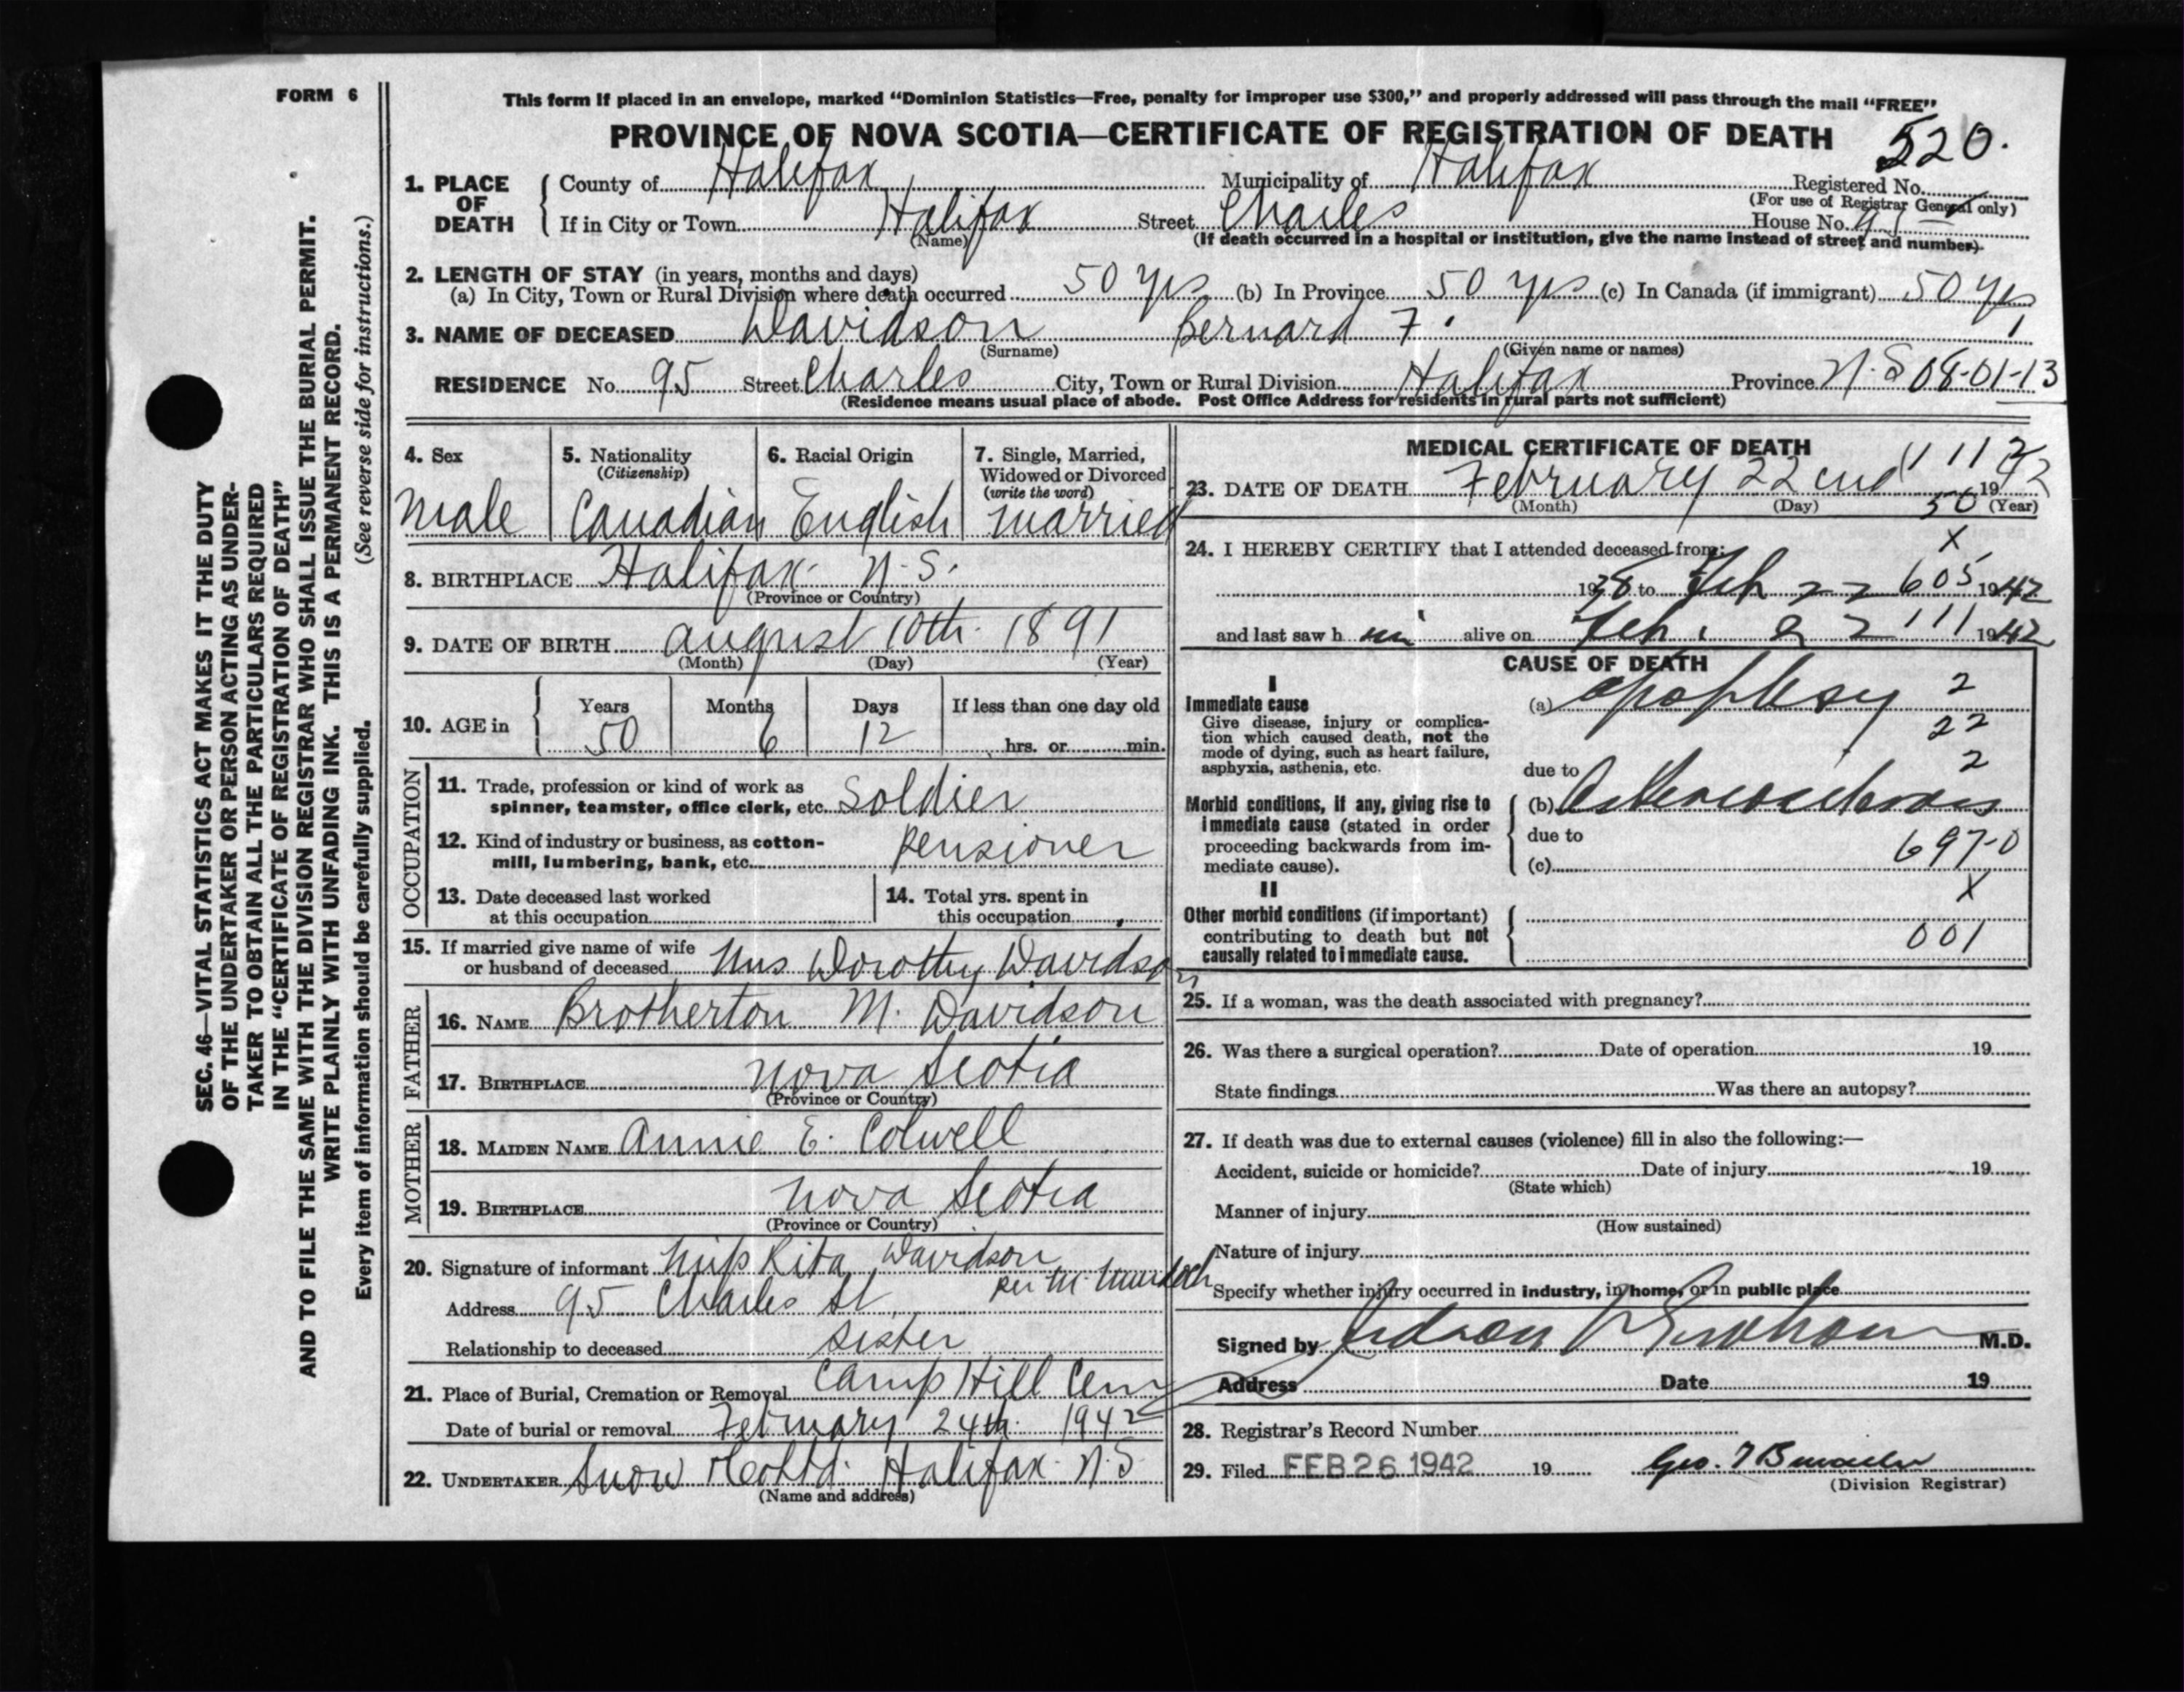 FORM 6
This form if placed in an envelope, marked "Dominion Statistics—Free, penalty for improper use $300," and properly addressed will pass through the mail "FREE"
PROVINCE OF NOVA SCOTIA—CERTIFICATE OF REGISTRATION OF DEATH
520.
1. PLACE OF DEATH
County of Halifax Municipality of Halifax Registered No.
(For use of Registrar General only)
If in City or Town Halifax Street Charles House No. 95
(Name) (If death occurred in a hospital or institution, give the name instead of street and number).
2. LENGTH OF STAY (in years, months and days)
(a) In City, Town or Rural Division where death occurred 50 yrs (b) In Province 50 yrs (c) In Canada (if immigrant) 50 yrs
3. NAME OF DECEASED Davidson Bernard F. 1
(Surname) (Given name or names)
RESIDENCE No. 95 Street Charles City, Town or Rural Division Halifax Province N.S 08-01-13
(Residence means usual place of abode. Post Office Address for residents in rural parts not sufficient)
4. Sex
male
5. Nationality
(Citizenship)
Canadian
6. Racial Origin
English
7. Single, Married, Widowed or Divorced
(write the word)
married
8. BIRTHPLACE Halifax N.S.
(Province or Country)
9. DATE OF BIRTH august 10th 1891
(Month) (Day) (Year)
10. AGE in
Years Months Days If less than one day old
50 6 12 hrs. or min.
OCCUPATION
11. Trade, profession or kind of work as
spinner, teamster, office clerk, etc. Soldier
12. Kind of industry or business, as cotton-
mill, lumbering, bank, etc. Pensioner
13. Date deceased last worked
at this occupation
14. Total yrs. spent in
this occupation
15. If married give name of wife
or husband of deceased Mrs Dorothy Davidson
FATHER
16. NAME Brotherton M. Davidson
17. BIRTHPLACE Nova Scotia
(Province or Country)
MOTHER
18. MAIDEN NAME Annie E. Colwell
19. BIRTHPLACE Nova Scotia
(Province or Country)
20. Signature of informant Miss Rita Davidson
per M. Murdoch
Address 95 Charles St.
Relationship to deceased sister
21. Place of Burial, Cremation or Removal Camp Hill Cem
Date of burial or removal February 24th 1942
22. UNDERTAKER Snow & Co Ltd. Halifax N.S
(Name and address)
MEDICAL CERTIFICATE OF DEATH
1 11 2
23. DATE OF DEATH February 22 1942
(Month) (Day) (Year)
50
X
24. I HEREBY CERTIFY that I attended deceased from:
1938 to Feb 22 605 1942
and last saw h im alive on Feb. 22 111 1942
CAUSE OF DEATH
I
Immediate cause
Give disease, injury or complica-
tion which caused death, not the
mode of dying, such as heart failure,
asphyxia, asthenia, etc.
(a) apoplexy 2
22
2
due to
Morbid conditions, if any, giving rise to
immediate cause (stated in order
proceeding backwards from im-
mediate cause).
(b)
due to
697-0
(c)
X
II
Other morbid conditions (if important)
contributing to death but not
causally related to immediate cause.
001
25. If a woman, was the death associated with pregnancy?
26. Was there a surgical operation? Date of operation 19
State findings Was there an autopsy?
27. If death was due to external causes (violence) fill in also the following:—
Accident, suicide or homicide? Date of injury 19
(State which)
Manner of injury
(How sustained)
Nature of injury
Specify whether injury occurred in industry, in home, or in public place
Signed by Judson M.D.
Address Date 19
28. Registrar's Record Number
29. Filed FEB 26 1942 19 Geo.
(Division Registrar)
SEC. 46—VITAL STATISTICS ACT MAKES IT THE DUTY
OF THE UNDERTAKER OR PERSON ACTING AS UNDER-
TAKER TO OBTAIN ALL THE PARTICULARS REQUIRED
IN THE "CERTIFICATE OF REGISTRATION OF DEATH"
AND TO FILE THE SAME WITH THE DIVISION REGISTRAR WHO SHALL ISSUE THE BURIAL PERMIT.
WRITE PLAINLY WITH UNFADING INK. THIS IS A PERMANENT RECORD.
Every item of information should be carefully supplied. (See reverse side for instructions.)